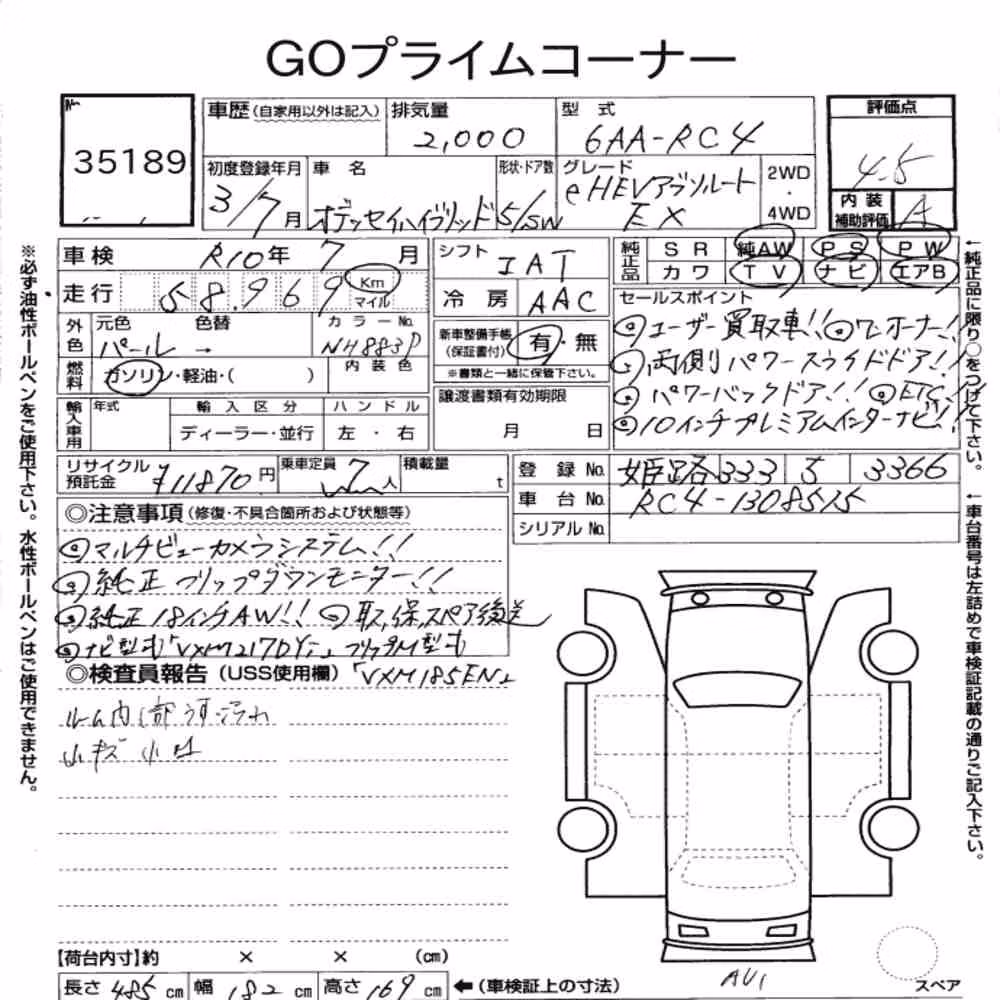 GOプライムコーナー
35189
車歴(自家用以外は記入)
排気量
2,000
型 式
6AA-RC4
評価点
4.5
初度登録年月
3/7月
車 名
オデッセイハイブリッド
形状・ドア数
5/SW
グレード
e HEVアブソルート
EX
2WD
・
4WD
内 装
補助評価
A
車検 R10年 7 月
走行 58,969 Km
マイル
シフト IAT
冷 房 AAC
純正品
SR 純AW PS PW
カワ TV ナビ エアB
外色
元色 パール
色替 →
カラーNo. NH883P
内装色
新車整備手帳
(保証書付) 有・無
※書類と一緒に保管下さい。
燃料 ガソリン・軽油・( )
セールスポイント
ユーザー買取車!! ワンオーナー!!
両側パワースライドドア!!
パワーバックドア!! ETC
10インチプレミアムインターナビ!!
輸入車用
年式
輸入区分
ディーラー・並行
ハンドル
左・右
譲渡書類有効期限
月 日
リサイクル
預託金 ¥11870円
乗車定員 7人
積載量 t
登 録 No. 姫路 333 う 3366
車 台 No. RC4-1308515
シリアルNo.
◎注意事項(修復・不具合箇所および状態等)
マルチビューカメラシステム!!
純正フリップダウンモニター!!
純正18インチAW!! 取,保,スペア後送
ナビ型式「VXM217DYi」フリップM型式
「VXM185EN」
◎検査員報告(USS使用欄)
ルーム内部うす汚れ
小キズ 小凹
【荷台内寸】約 × × (cm)
長さ 485 cm 幅 182 cm 高さ 169 cm ←(車検証上の寸法)
AU1
スペア
※必ず油性ボールペンをご使用下さい。水性ボールペンはご使用できません。
←純正品に限り○をつけて下さい。
←車台番号は左詰めで車検証記載の通りご記入下さい。